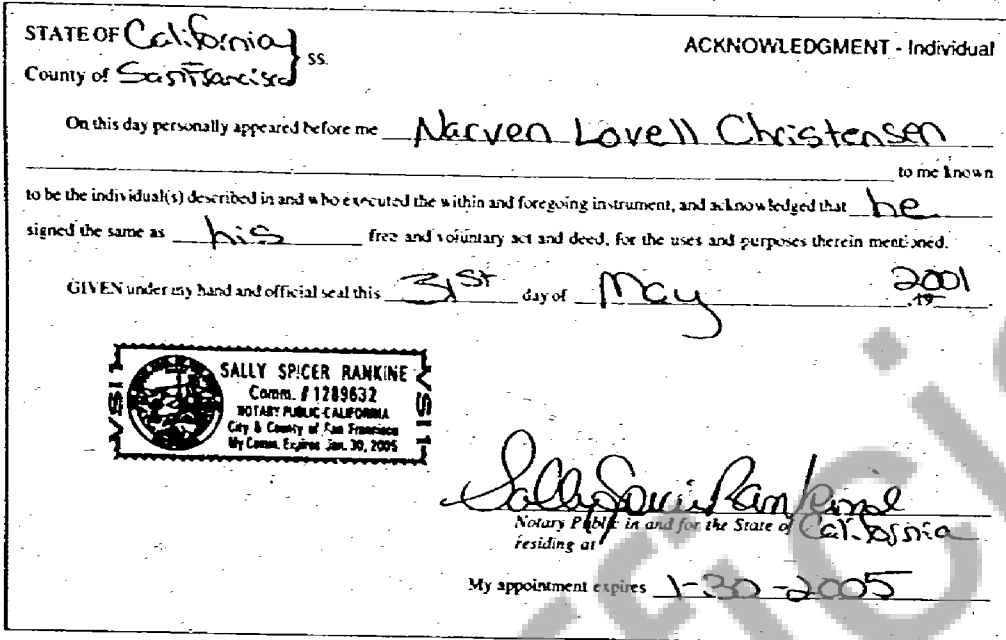 STATE OF California } ss.
ACKNOWLEDGMENT - Individual
County of San Francisco
On this day personally appeared before me Narven Lovell Christensen
to me known
to be the individual(s) described in and who executed the within and foregoing instrument, and acknowledged that he
signed the same as his free and voluntary act and deed, for the uses and purposes therein mentioned.
GIVEN under my hand and official seal this 31st day of May 2001
19
SALLY SPICER RANKINE
Comm. # 1289632
NOTARY PUBLIC-CALIFORNIA
City & County of San Francisco
My Comm. Expires Jan. 30, 2005
VSI1
VSI1
Sally Spicer Rankine
Notary Public in and for the State of California
residing at
My appointment expires 1-30-2005